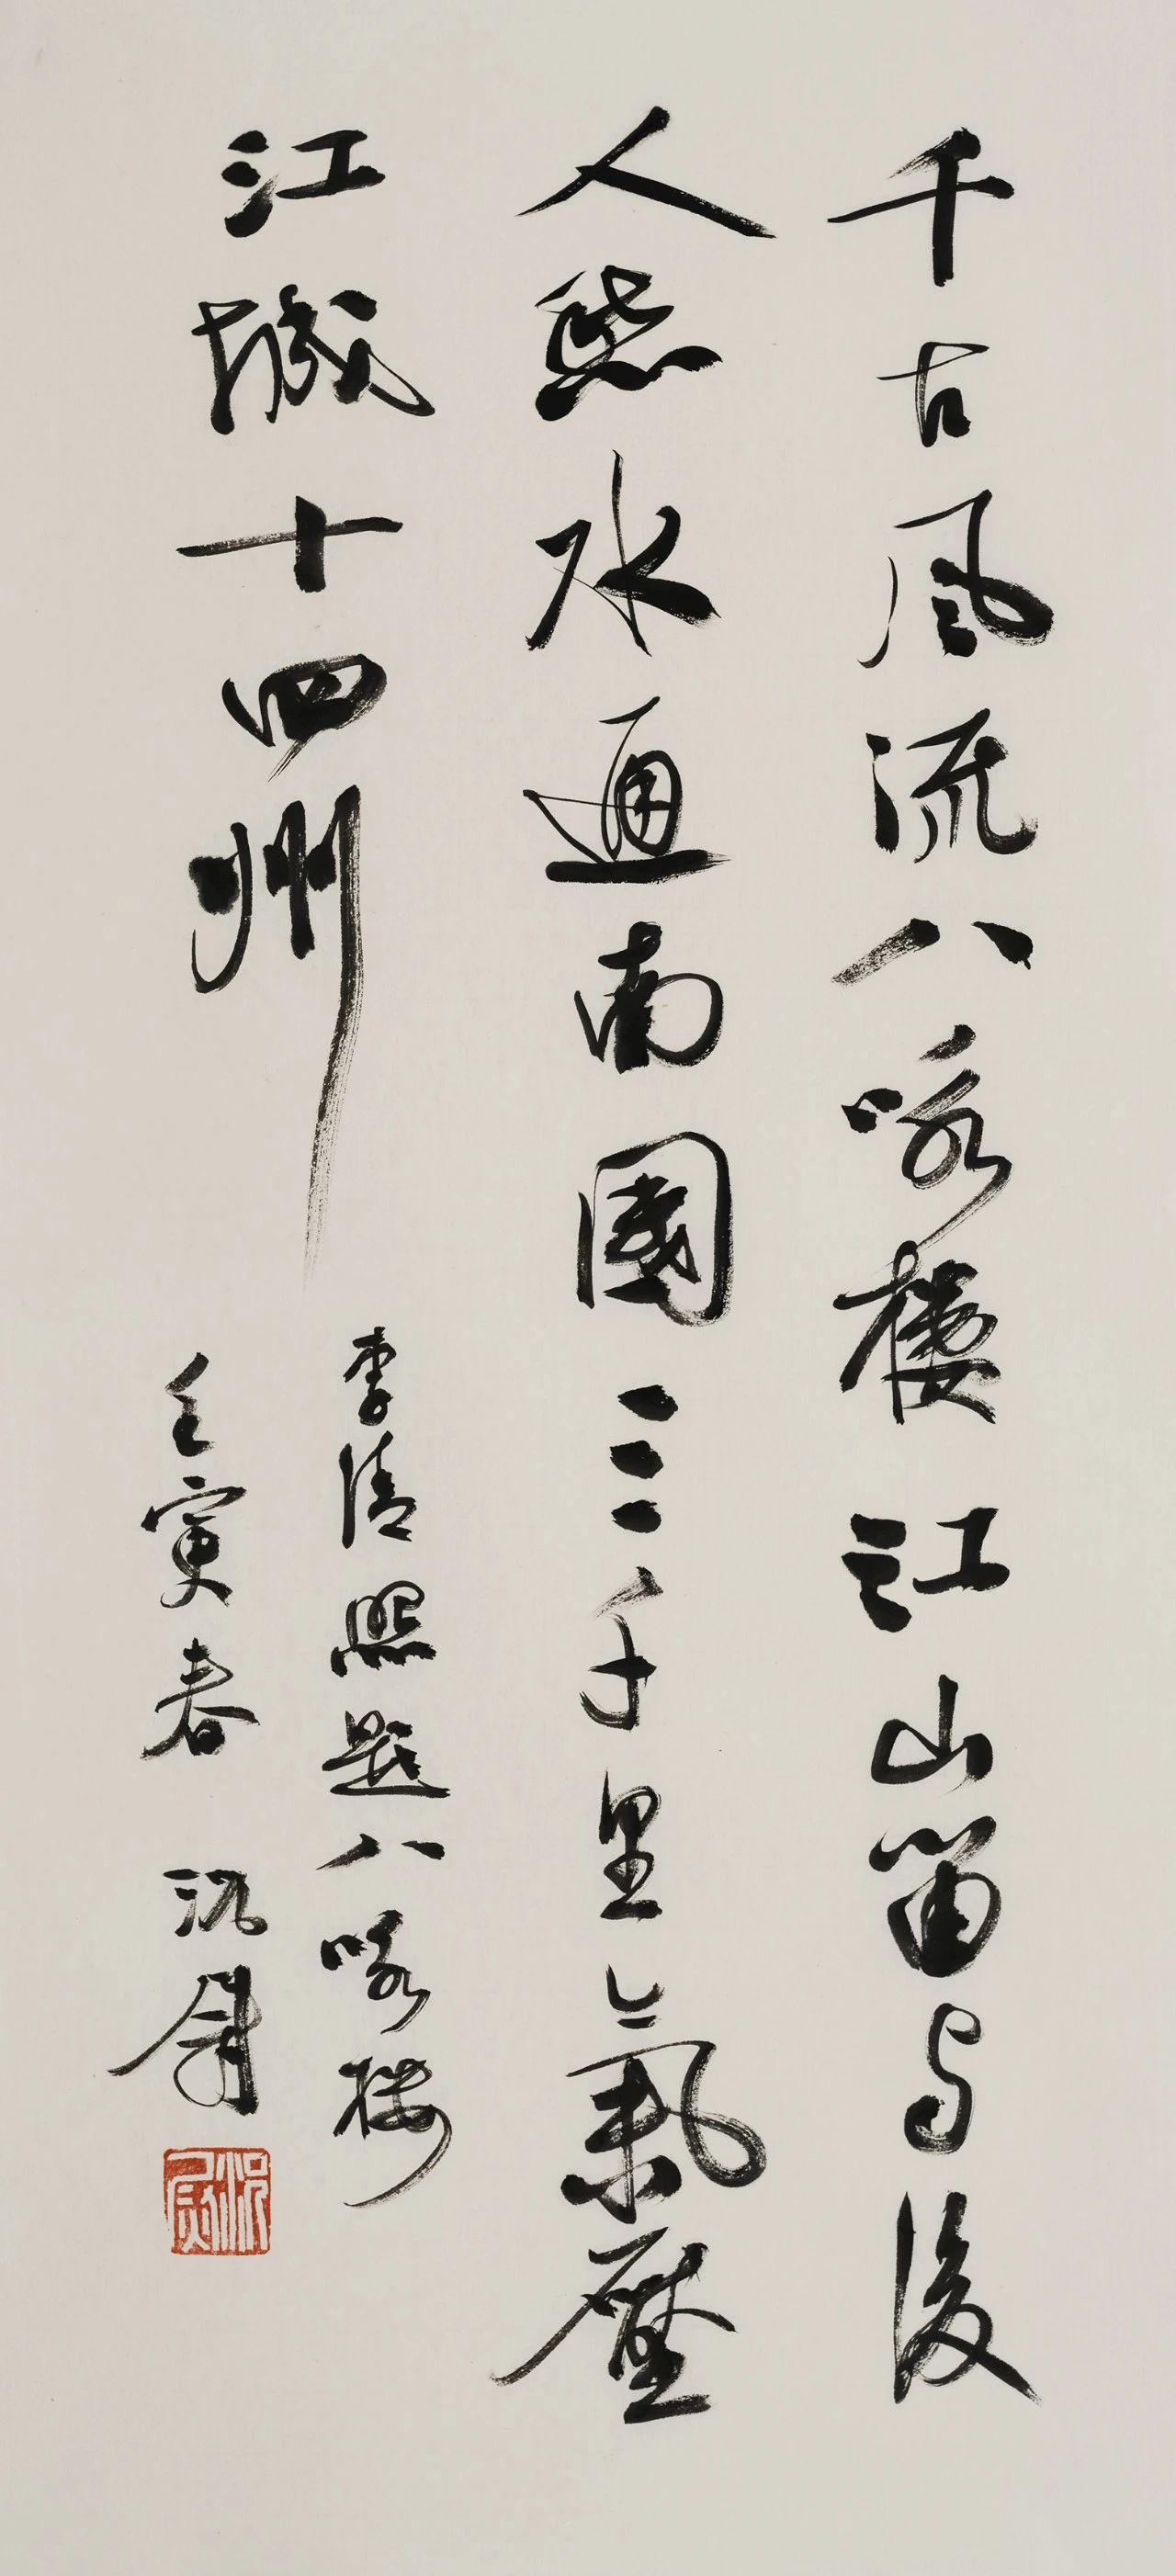 千古風流八咏樓江山留与後
人愁水通南國三千里氣壓
江城十四州
李清照題八咏楼
壬寅春 沈